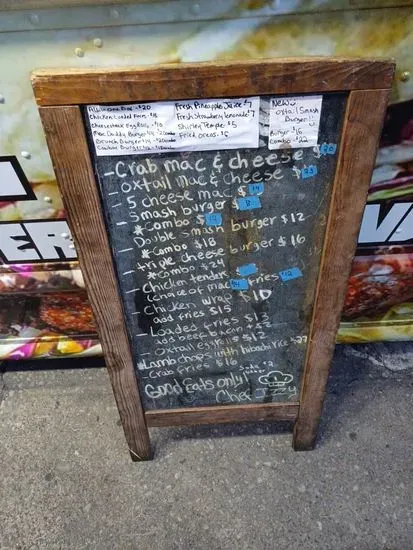 All in One Box - $20
Chicken Loaded Fries - $18
Cheesesteak Eggrolls - $10
Mac Daddy Burger
Brunch Burger
Fresh Pineapple Juice $7
Fresh Strawberry lemonade $7
Shirley Temple $5
Fried Oreos - $6
New
oxtail Smash
Burger!!
Burger $16
Combo $22
- Crab mac & cheese $20
- oxtail mac & cheese $23
- 5 cheese mac $14
- Smash burger $8
*Combo $14
Double Smash burger $12
*Combo $18
- triple cheese burger $16
*Combo $24
- Chicken tenders
(choice of mac fries
- Chicken Wrap $10
add fries $15
- Loaded fries $13
add beef bacon + $2
- Oxtail eggrolls $12
*Lamb chops with hibachi rice $27
Crab fries $16
Soda $2
Good Eats only!
Chef Jzzy